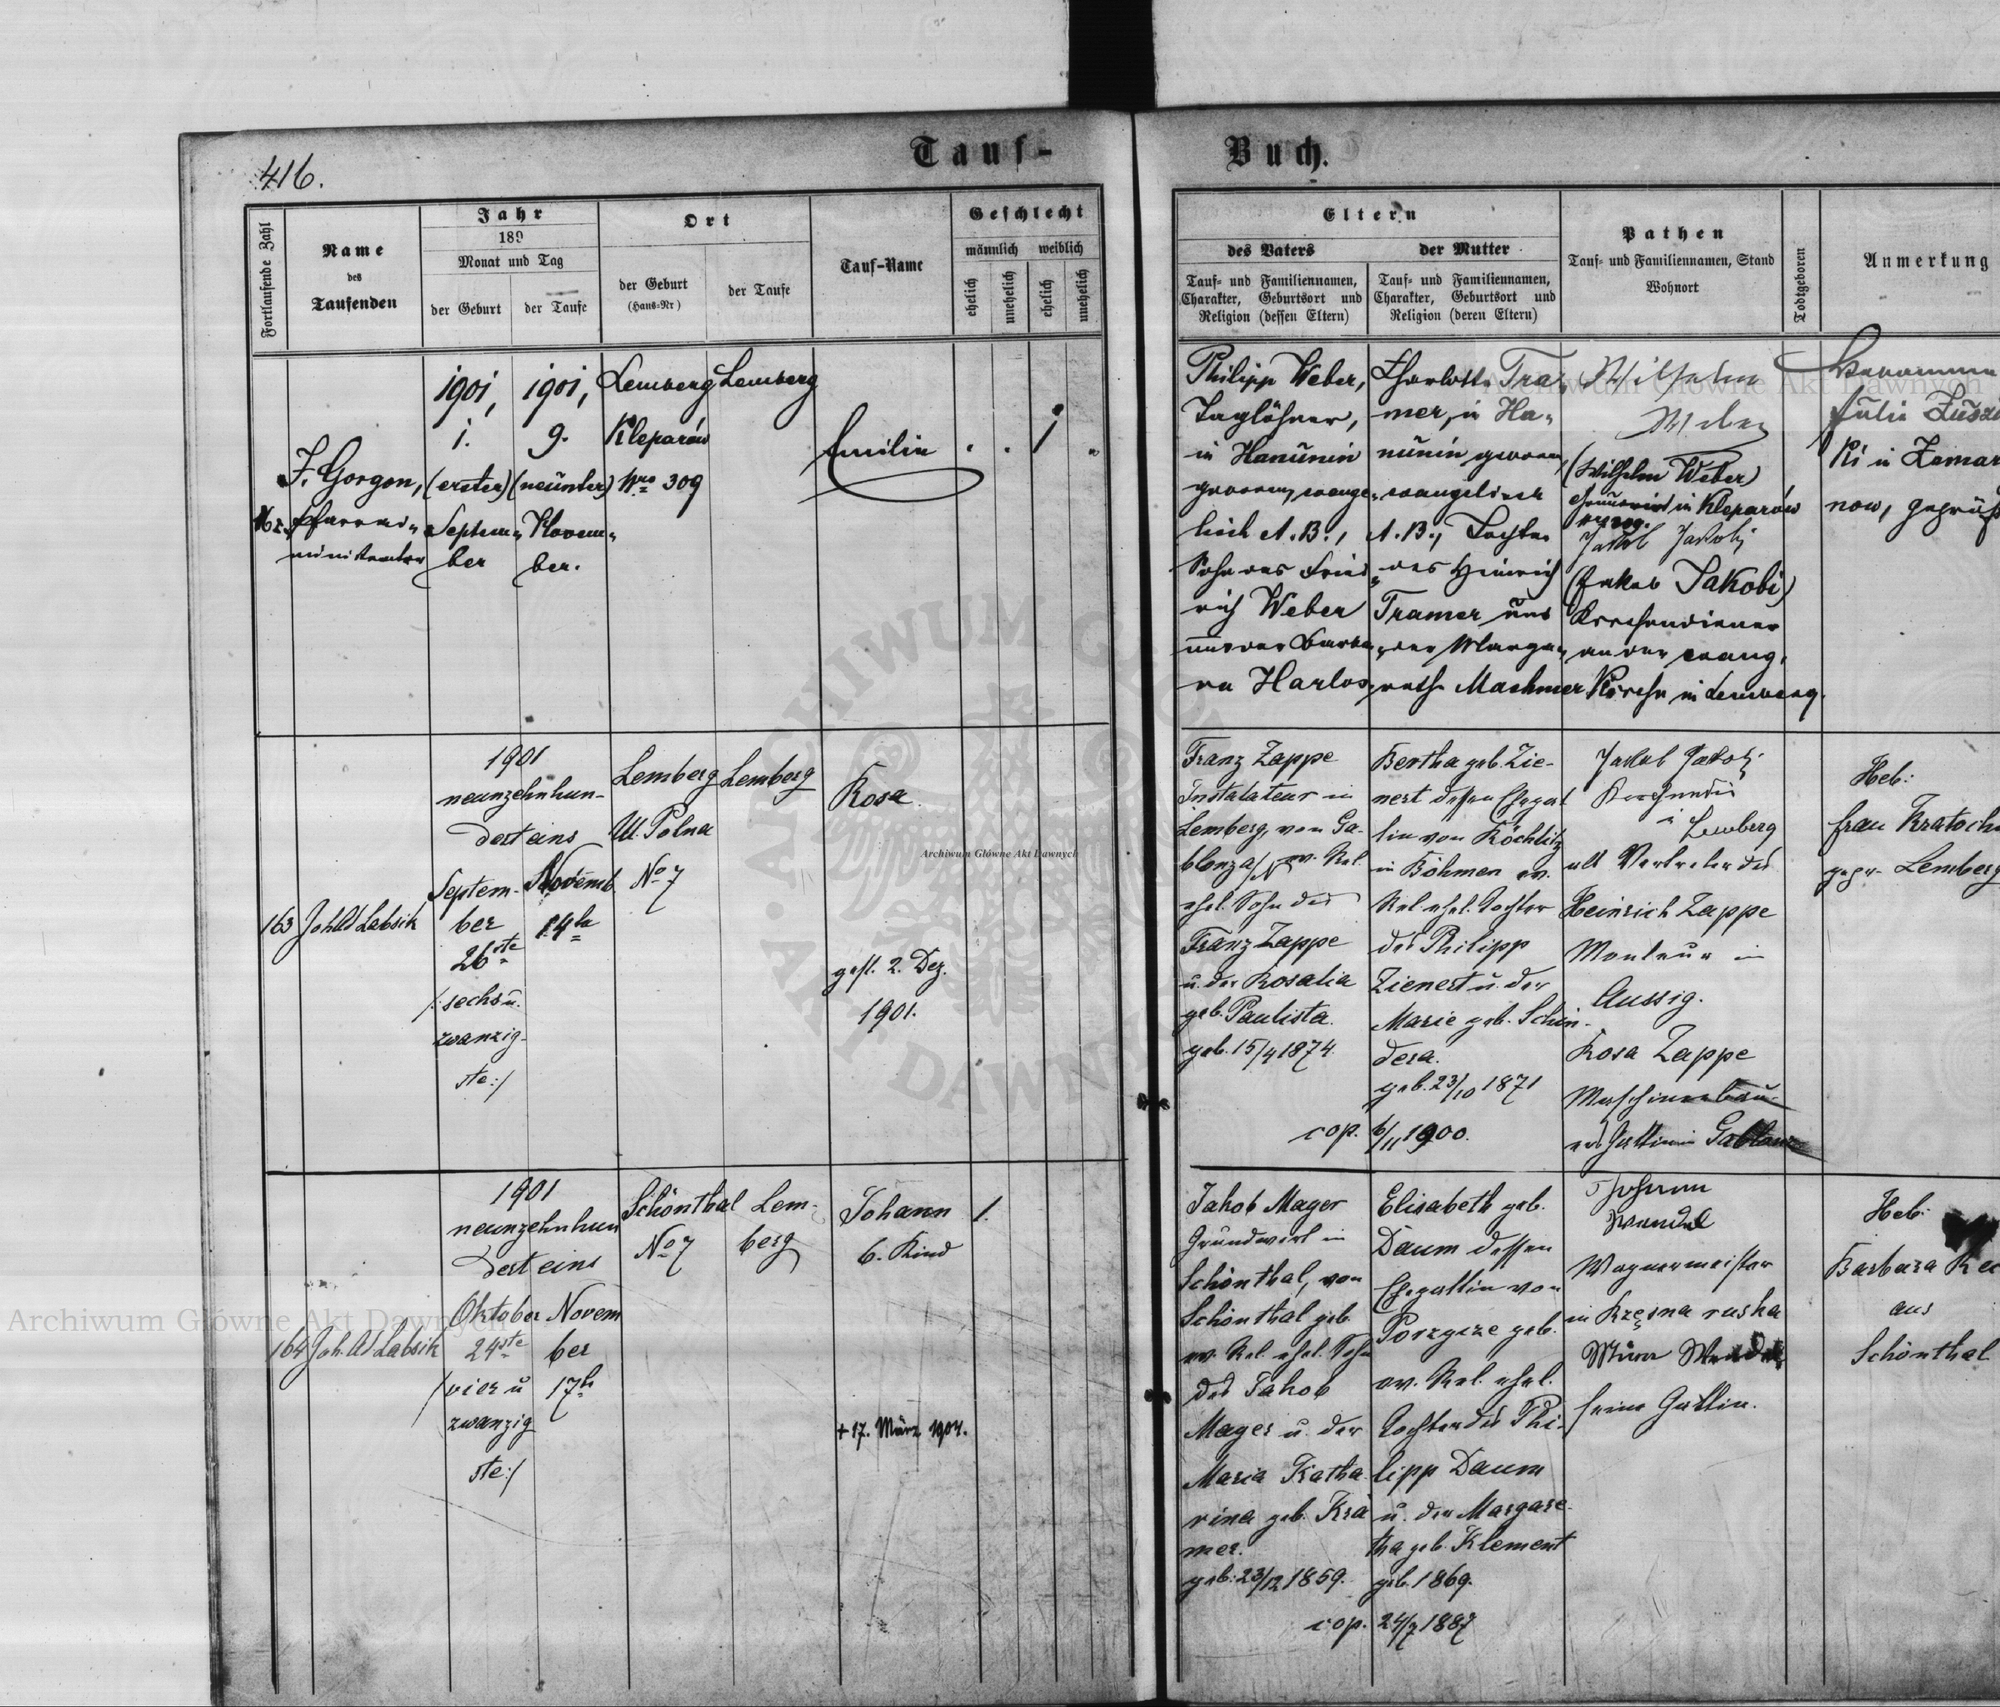 416.
Tauf-
Buch.
Fortlaufende Zahl
Name
des
Taufenden
Jahr
189
Monat und Tag
der Geburt
der Taufe
Ort
der Geburt
(Haus-Nr)
der Taufe
Tauf-Name
Geschlecht
männlich
weiblich
ehelich
unehelich
ehelich
unehelich
Eltern
des Vaters
Tauf- und Familiennamen,
Charakter, Geburtsort und
Religion (dessen Eltern)
der Mutter
Tauf- und Familiennamen,
Charakter, Geburtsort und
Religion (deren Eltern)
Pathen
Tauf- und Familiennamen, Stand
Wohnort
Todtgeboren
Anmerkung
F. Gorgon,
1901,
1.
(erster)
Septem-
ber
1901,
9.
(neunter)
Novem-
ber.
Lemberg
Kleparów
Nro 309
Lemberg
Emilie
1
Philipp Weber,
Taglöhner,
in Hanunin
geboren, evange-
lisch A. B.,
Sohn des Fried-
rich Weber
und der Barba-
ra Harlos
Charlotte Tra-
mer, in Ha-
nunin geboren,
evangelisch
A. B., Tochter
des Heinrich
Tramer und
der Marga-
reth Machmer
Wilhelm
Weber
(Wilhelm Weber)
in Kleparów
Nro 309.
Jakob Jakobi
(Jakob Jakobi)
Kirchendiener
an der evang.
Kirche in Lemberg.
Hebamme
Julie
in
now,
163
Joh. Ad Labsik
1901
neunzehnhun-
dert eins
Septem-
ber
26ste
/: sechs u.
zwanzig-
ste :/
Novemb
14te
Lemberg
Ul. Polna
No 7
Lemberg
Rosa
gest. 2. Dez.
1901.
Franz Zappe
Instalateur in
Lemberg, von Ga-
blonz a/N ev. Rel.
ehel. Sohn des
Franz Zappe
u. der Rosalia
geb. Paulista.
geb. 15/4 1874.
Bertha geb. Zie-
nert dessen Ehegat
tin von Röchlitz
in Böhmen ev.
Rel ehel. Tochter
des Philipp
Zienert u. der
Marie geb. Schin-
dera.
geb. 23/10 1871
cop. 6/11 1900.
Jakob Jakobi
Kirchendie
i Lemberg
als Vertreter des
Heinrich Zappe
Monteur in
Aussig.
Rosa Zappe
Maschinenbau-
Gattin in Gablonz
Heb:
frau
gepr. Lemberg
164
Joh. Ad Labsik
1901
neunzehnhun
dert eins
Oktober
24ste
/ vier u
zwanzig
ste :/
Novem
ber
17te
Schönthal
No 7
Lem-
berg
Johann
6. Kind
1.
+ 17. März 1904.
Jakob Mager
Grundwirt in
Schönthal, von
Schönthal geb.
ev. Rel. ehel. Sohn
des Jakob
Mager u. der
Maria Katha
rina geb. Krä
mer.
geb: 23/12 1859.
Elisabeth geb.
Daum dessen
Ehegattin von
Porzycze geb.
ev. Rel. ehel.
Tochter des Phi-
lipp Daum
u. der Margare-
tha geb. Klement
geb. 1869.
cop. 24/7 1887
Johann
Wendel
Wagnermeister
in Rzęsna ruska
seine Gattin.
Heb:
Barbara
aus
Schönthal
Archiwum Główne Akt Dawnych
Archiwum Główne Akt Dawnych
Archiwum Główne Akt Dawnych